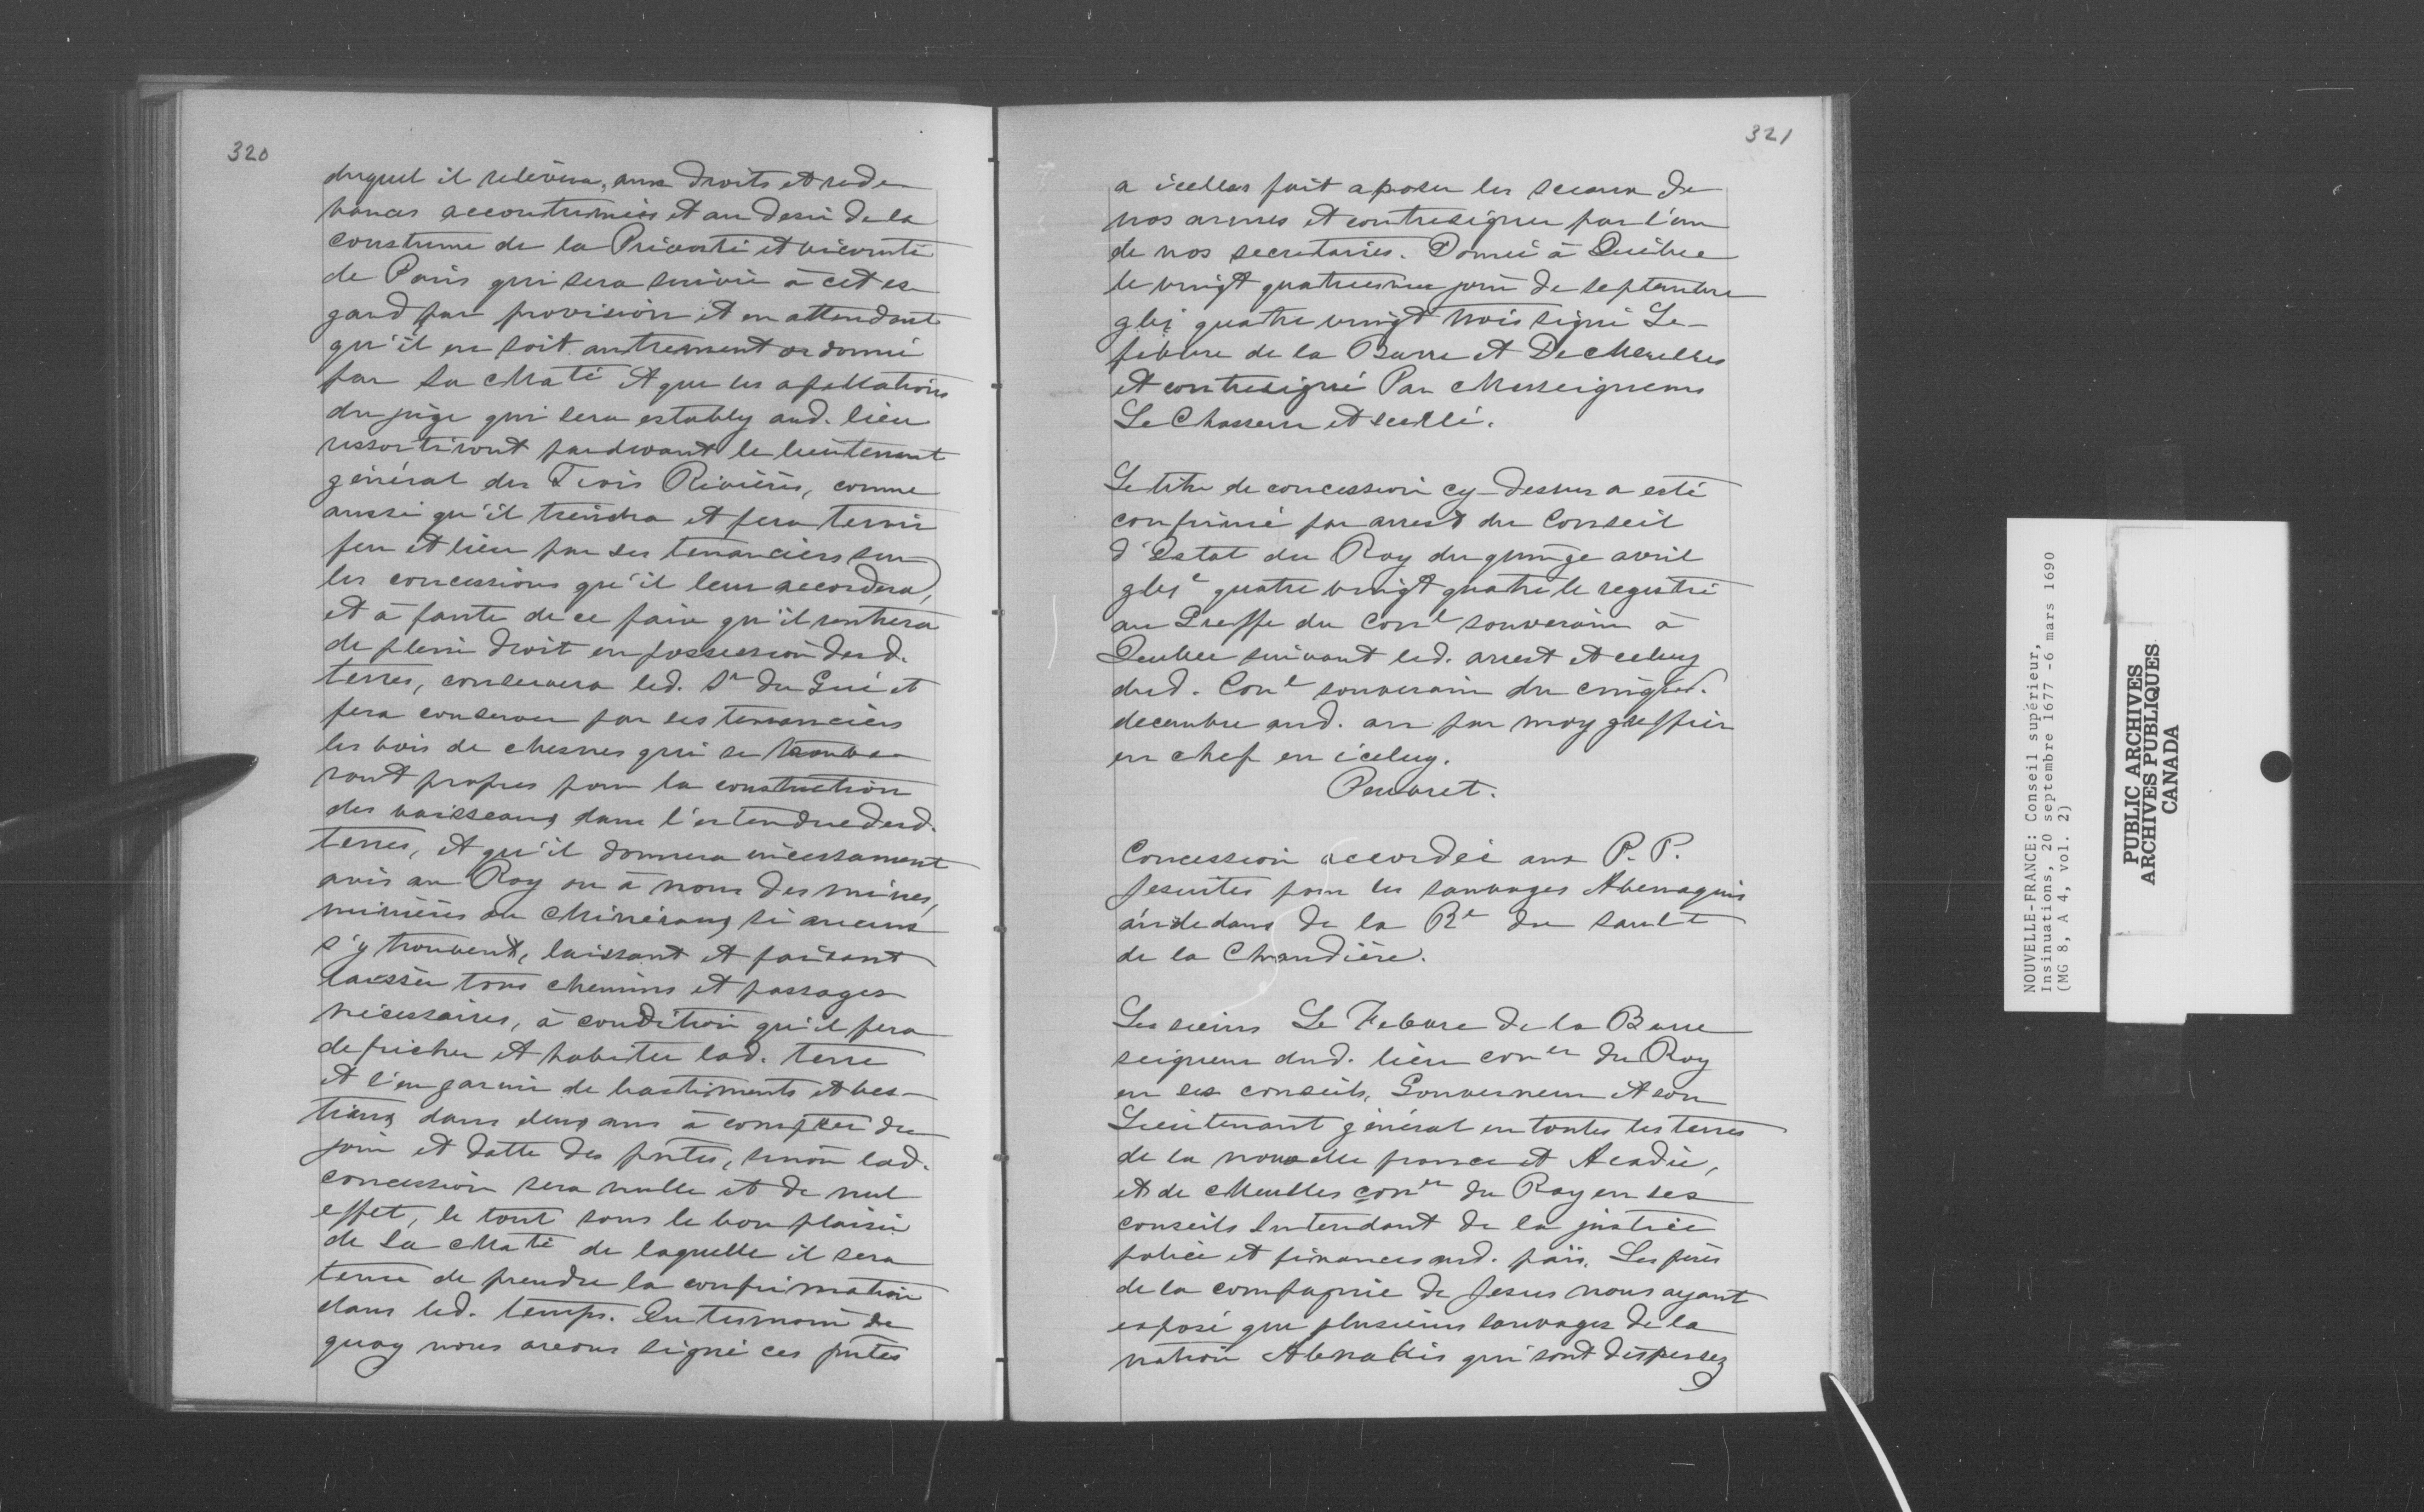 320
duquel il relévera, aux droits et rede
vances accoutumées et au desir de la
coustume de la Prévosté et vicomté
de Paris qui sera suivie à cet es
gard par provision et en attendant
qu'il en soit autrement ordonné
par Sa Maté et que les apellations
du juge qui sera estably aud. lieu
ressortiront pardevant le lieutenant
général des Trois Rivières, comme
aussi qu'il tiendra et fera tenir
feu et lieu par ses tenanciers sur
les concessions qu'il leur accordera,
et à faute de ce faire qu'il rentrera
de plein droit en possession desd.
terres, conservera led. Sr du Gué et
fera conserver par ses tenanciers
les bois de chesnes qui se trouve
ront propres pour la construction
des vaisseaux dans l'estendue desd.
terres, et qu'il donnera incessament
avis au Roy ou à nous des mines,
minières ou Minéraux si aucuns
s'y trouvent, laissant et faisant
laisser tous chemins et passages
nécessaires, à condition qu'il fera
defricher et habiter lad. terre
et l'en garnir de bastiments et bes-
tiaux dans deux ans à compter du
jour et datte des pntes, sinon lad.
concession sera nulle et de nul
effet, le tout sous le bon plaisir
de Sa Maté de laquelle il sera
tenu de prendre la confirmation
dans led. temps. En tesmoin de
quoy nous avons signé ces pntes
321
a icelles fait aposer les sceaux de
nos armes et contresigner par l'un
de nos secretaires. Donné à Québec
le vingt quatriesme jour de septembre
gbi quatre vingt trois signé Le-
febvre de la Barre et De Meulles
et contresigné Par Messeigneurs
Le Chasseur et scellé.
Le titre de concession cy-dessus a esté
confirmé par arrest du Conseil
d'Estat du Roy du quinze avril
gbic quatre vingt quatre le registré
au Greffe du Conl souverain à
Quebec suivant led. arrest et celuy
dud. Conl souverain du cinqt.
decembre aud. an par moy greffier
en chef en iceluy.
Peuvret.
Concession accordée aux P. P.
Jesuites pour les sauvages Abenaquis
au dedans de la Re du Sault
de la Chaudière.
Les sieurs Le Febvre de la Barre
seigneur dud. lieu coner du Roy
en ses conseils, Gouverneur et son
Lieutenant général en toutes les terres
de la nouvelle france et Acadie,
et de Meulles coner du Roy en ses
conseils Intendant de la justice
police et finances aud. païs, Les pères
de la compagnie de Jesus nous ayant
exposé que plusieurs sauvages de la
nation Abenakis qui sont dispersez
NOUVELLE-FRANCE: Conseil supérieur,
Insinuations, 20 septembre 1677 -6 mars 1690
(MG 8, A 4, vol. 2)
PUBLIC ARCHIVES
ARCHIVES PUBLIQUES
CANADA